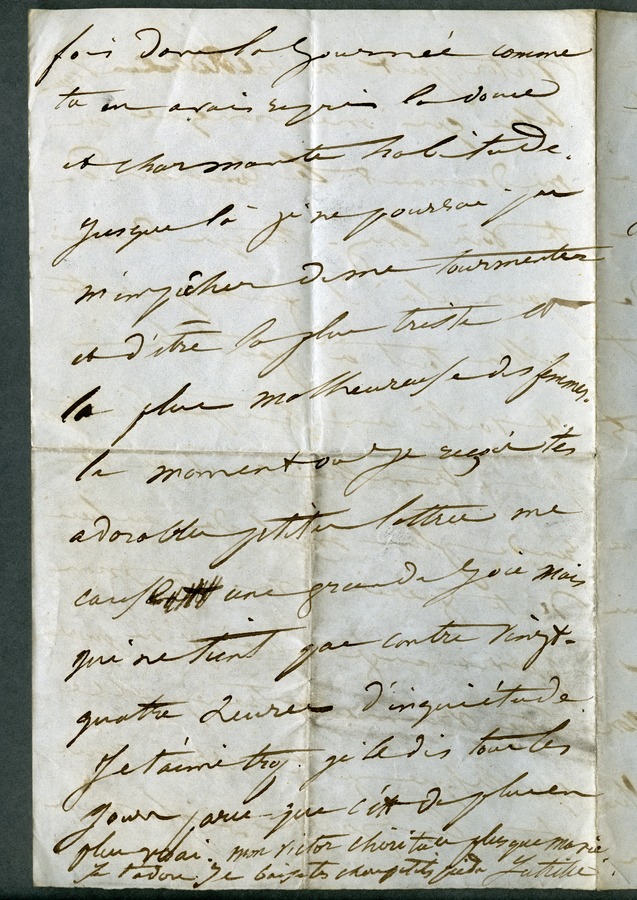 fois dans la journée comme
tu en avais repris la douce
et charmante habitude.
Jusque là je ne pourrai pas
m'empêcher de me tourmenter
et d'être la plus triste et
la plus malheureuse des femmes.
le moment où je reçois tes
adorables petites lettres me
cause une grande joie mais
qui ne tient pas contre vingt-
quatre heures d'inquiétude.
Je t'aime trop. je le dis tous les
jours parce que c'est de plus en
plus vrai. mon victor chéri tu es plus que ma vie
je t'adore. Je baise tes chers petits pieds Juliette